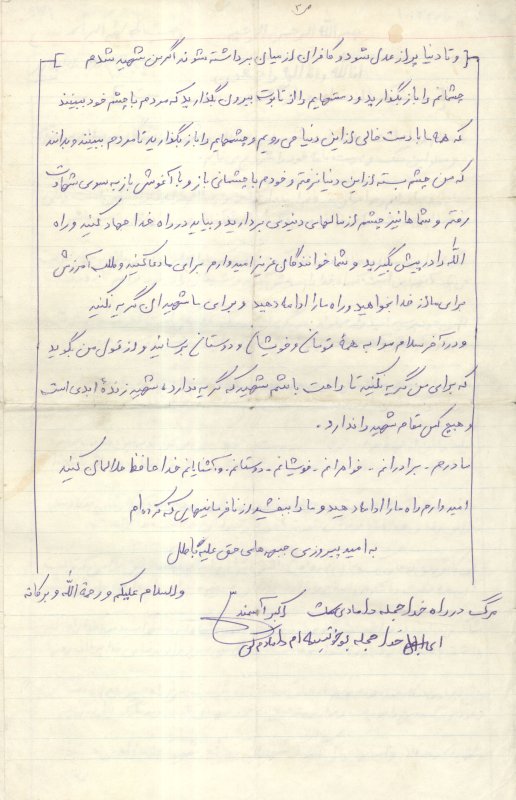 ص۳
[ و تا دنیا پر از عدل شود و کافران از میان برداشته شوند اگر من شهید شدم ]
چشمانم را باز بگذارید و دستهایم را از تابوت بیرون بگذارید که مردم با چشم خود ببینند
که همه ما با دست خالی از این دنیا می رویم و چشمهایم را باز بگذارید تا مردم ببینند و بدانند
که من چشم بسته از این دنیا نرفتم و خودم با چشمانی باز و با آغوش باز به سوی شهادت
رفتم و شما نیز چشم از مالهای دنیوی بردارید و بیاید در راه خدا جهاد کنید و راه
الله را در پیش بگیرید و شما خوانندگان عزیز امیدوارم برای ما دعا کنید و طلب آمرزش
برای ما از خدا بخواهید و راه ما را ادامه دهید و برای ما شهیدان گریه نکنید
و در آخر سلام مرا به همهٔ و خویشان و دوستان برسانید و از قول من بگوید
که برای من گریه نکنید تا راحت باشم شهید که گریه ندارد، شهید زندهٔ ابدی است
و هیچ کس مقام شهید را ندارد.
مادرم - برادرانم - خواهرانم - خویشانم - دوستانم - و آشنایانم خدا حافظ حلالم کنید
امیدوارم راه ما را ادامه دهید و ما را ببخشید از نافرمانیهایی که کرده ام
به امید پیروزی جبهه های حق علیه باطل
والسلام علیکم و رحمة الله و برکاته
مرگ در راه خدا حجله دامادی ماست اکبر
خدا حجله ام دامادم کن